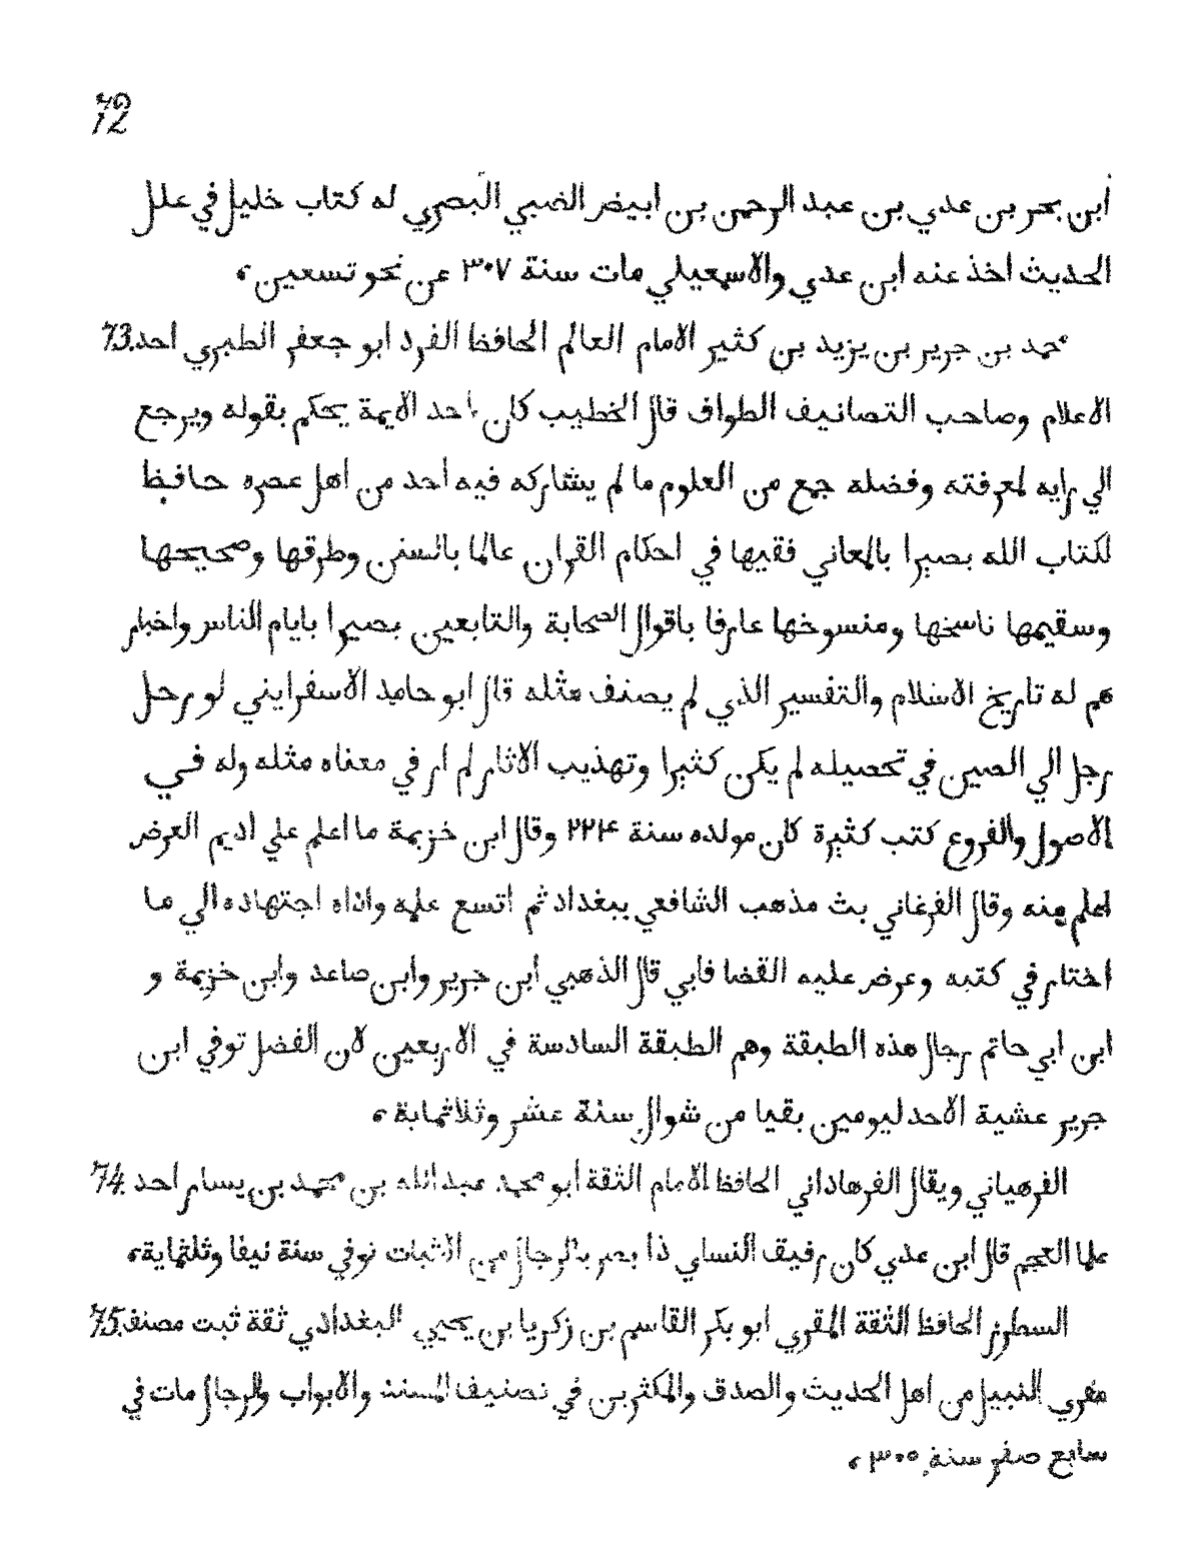 72
ابن بحر بن عدي بن عبد الرحمن بن ابيض الضبي البصري له كتاب خليل في علل
الحديث اخذ عنه ابن عدي والاسمعيلي مات سنة ٣٠٧ عن نحو تسعين ،
73. محمد بن جرير بن يزيد بن كثير الامام العالم الحافظ الفرد ابو جعفر الطبري احد
الاعلام وصاحب التصانيف الطواف قال الخطيب كان احد الايمة يحكم بقوله ويرجع
الي رايه لمعرفته وفضله جمع من العلوم ما لم يشاركه فيه احد من اهل عصره حافظ
لكتاب الله بصيرا بالمعاني فقيها في احكام القران عالما بالسنن وطرقها وصحيحها
وسقيمها ناسخها ومنسوخها عارفا باقوال الصحابة والتابعين بصيرا بايام الناس واخبار
هم له تاريخ الاسلام والتفسير الذي لم يصنف مثله قال ابو حامد الاسفرايني لو رحل
رجل الي الصين في تحصيله لم يكن كثيرا وتهذيب الاثار لم ار في معناه مثله وله في
الاصول والفروع كتب كثيرة كان مولده سنة ٢٢٤ وقال ابن خزيمة ما اعلم علي اديم العرض
اعلم منه وقال الفرغاني بث مذهب الشافعي ببغداد ثم اتسع عليه واذاه اجتهاده الي ما
اختار في كتبه وعرض عليه القضا فابي قال الذهبي ابن جرير وابن صاعد وابن خزيمة و
ابن ابي حاتم رجال هذه الطبقة وهم الطبقة السادسة في الاربعين لان الفضل توفي ابن
جرير عشية الاحد ليومين بقيا من شوال سنة عشر وثلاثماية ،
74. الفرهياني ويقال الفرهاداني الحافظ الامام الثقة ابو محمد عبد الله بن محمد بن يسار احد
علما العجم قال ابن عدي كان رفيق النساي ذا بصر بالرجال من الاثبات توفي سنة نيفا وثلثماية ،
75. السطرز الحافظ الثقة المقري ابو بكر القاسم بن زكريا بن يحيي البغدادي ثقة ثبت مصنف
مقري النبيل من اهل الحديث والصدق والمكثرين في تصنيف المسند والابواب والرجال مات في
سابع صفر سنة ٣٠٥ ،